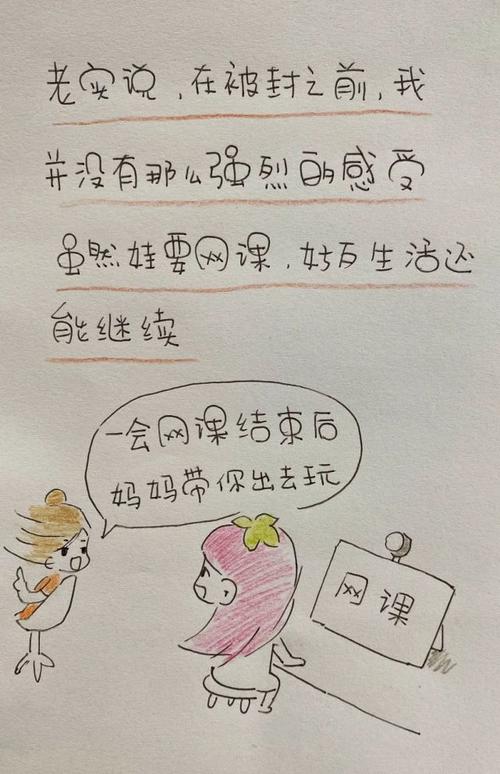 老实说，在被封之前，我
并没有那么强烈的感受
虽然娃要网课，好歹生活还
能继续
一会网课结束后
妈妈带你出去玩
网课